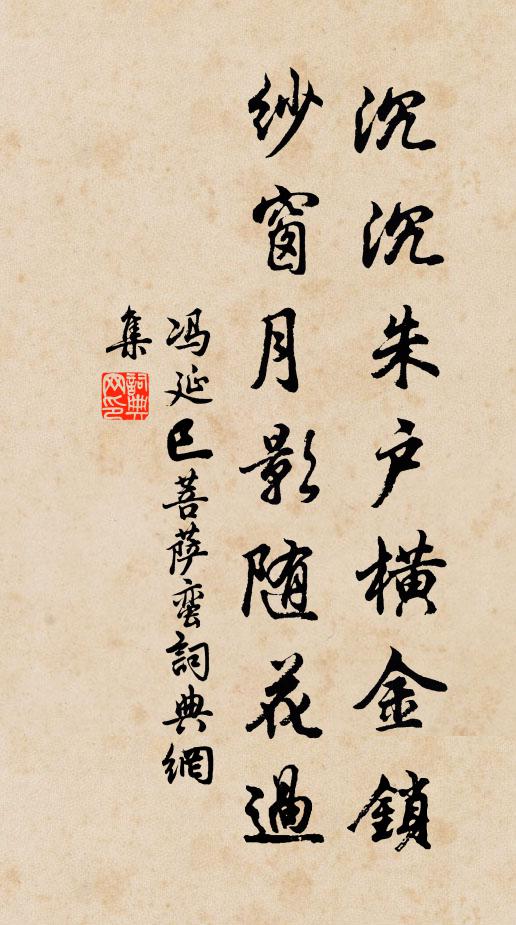 沉沉朱户横金鎖
纱窗月影随花過
冯延巳菩萨蛮詞典網
集
詞典网印